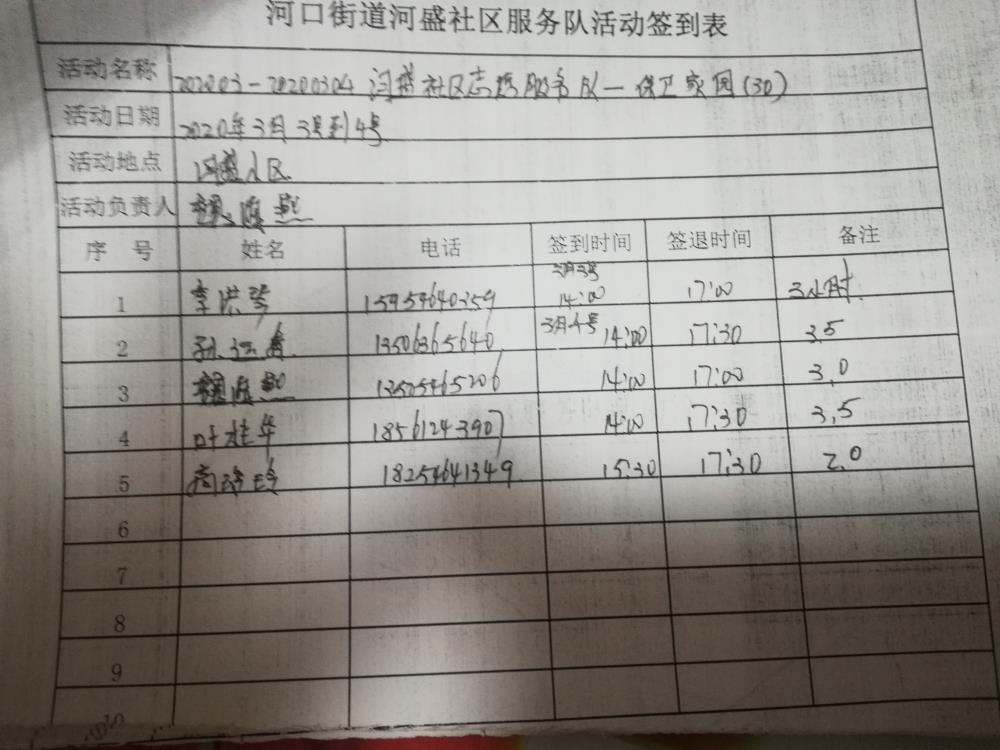 河口街道河盛社区服务队活动签到表
活动名称 202003-20200304 河盛社区志愿服务队一保卫家园(30)
活动日期 2020年3月3号到4号
活动地点 河盛小区
活动负责人
序 号 姓名 电话 签到时间 签退时间 备注
1 李洪琴 15954640359 3月3号 14:00 17:00 3小时
2 孙 13506365640 3月4号 14:00 17:30 3.5
3 13505465206 14:00 17:00 3.0
4 叶桂华 18561243907 14:00 17:30 3.5
5 18254641349 15:30 17:30 2.0
6
7
8
9
10